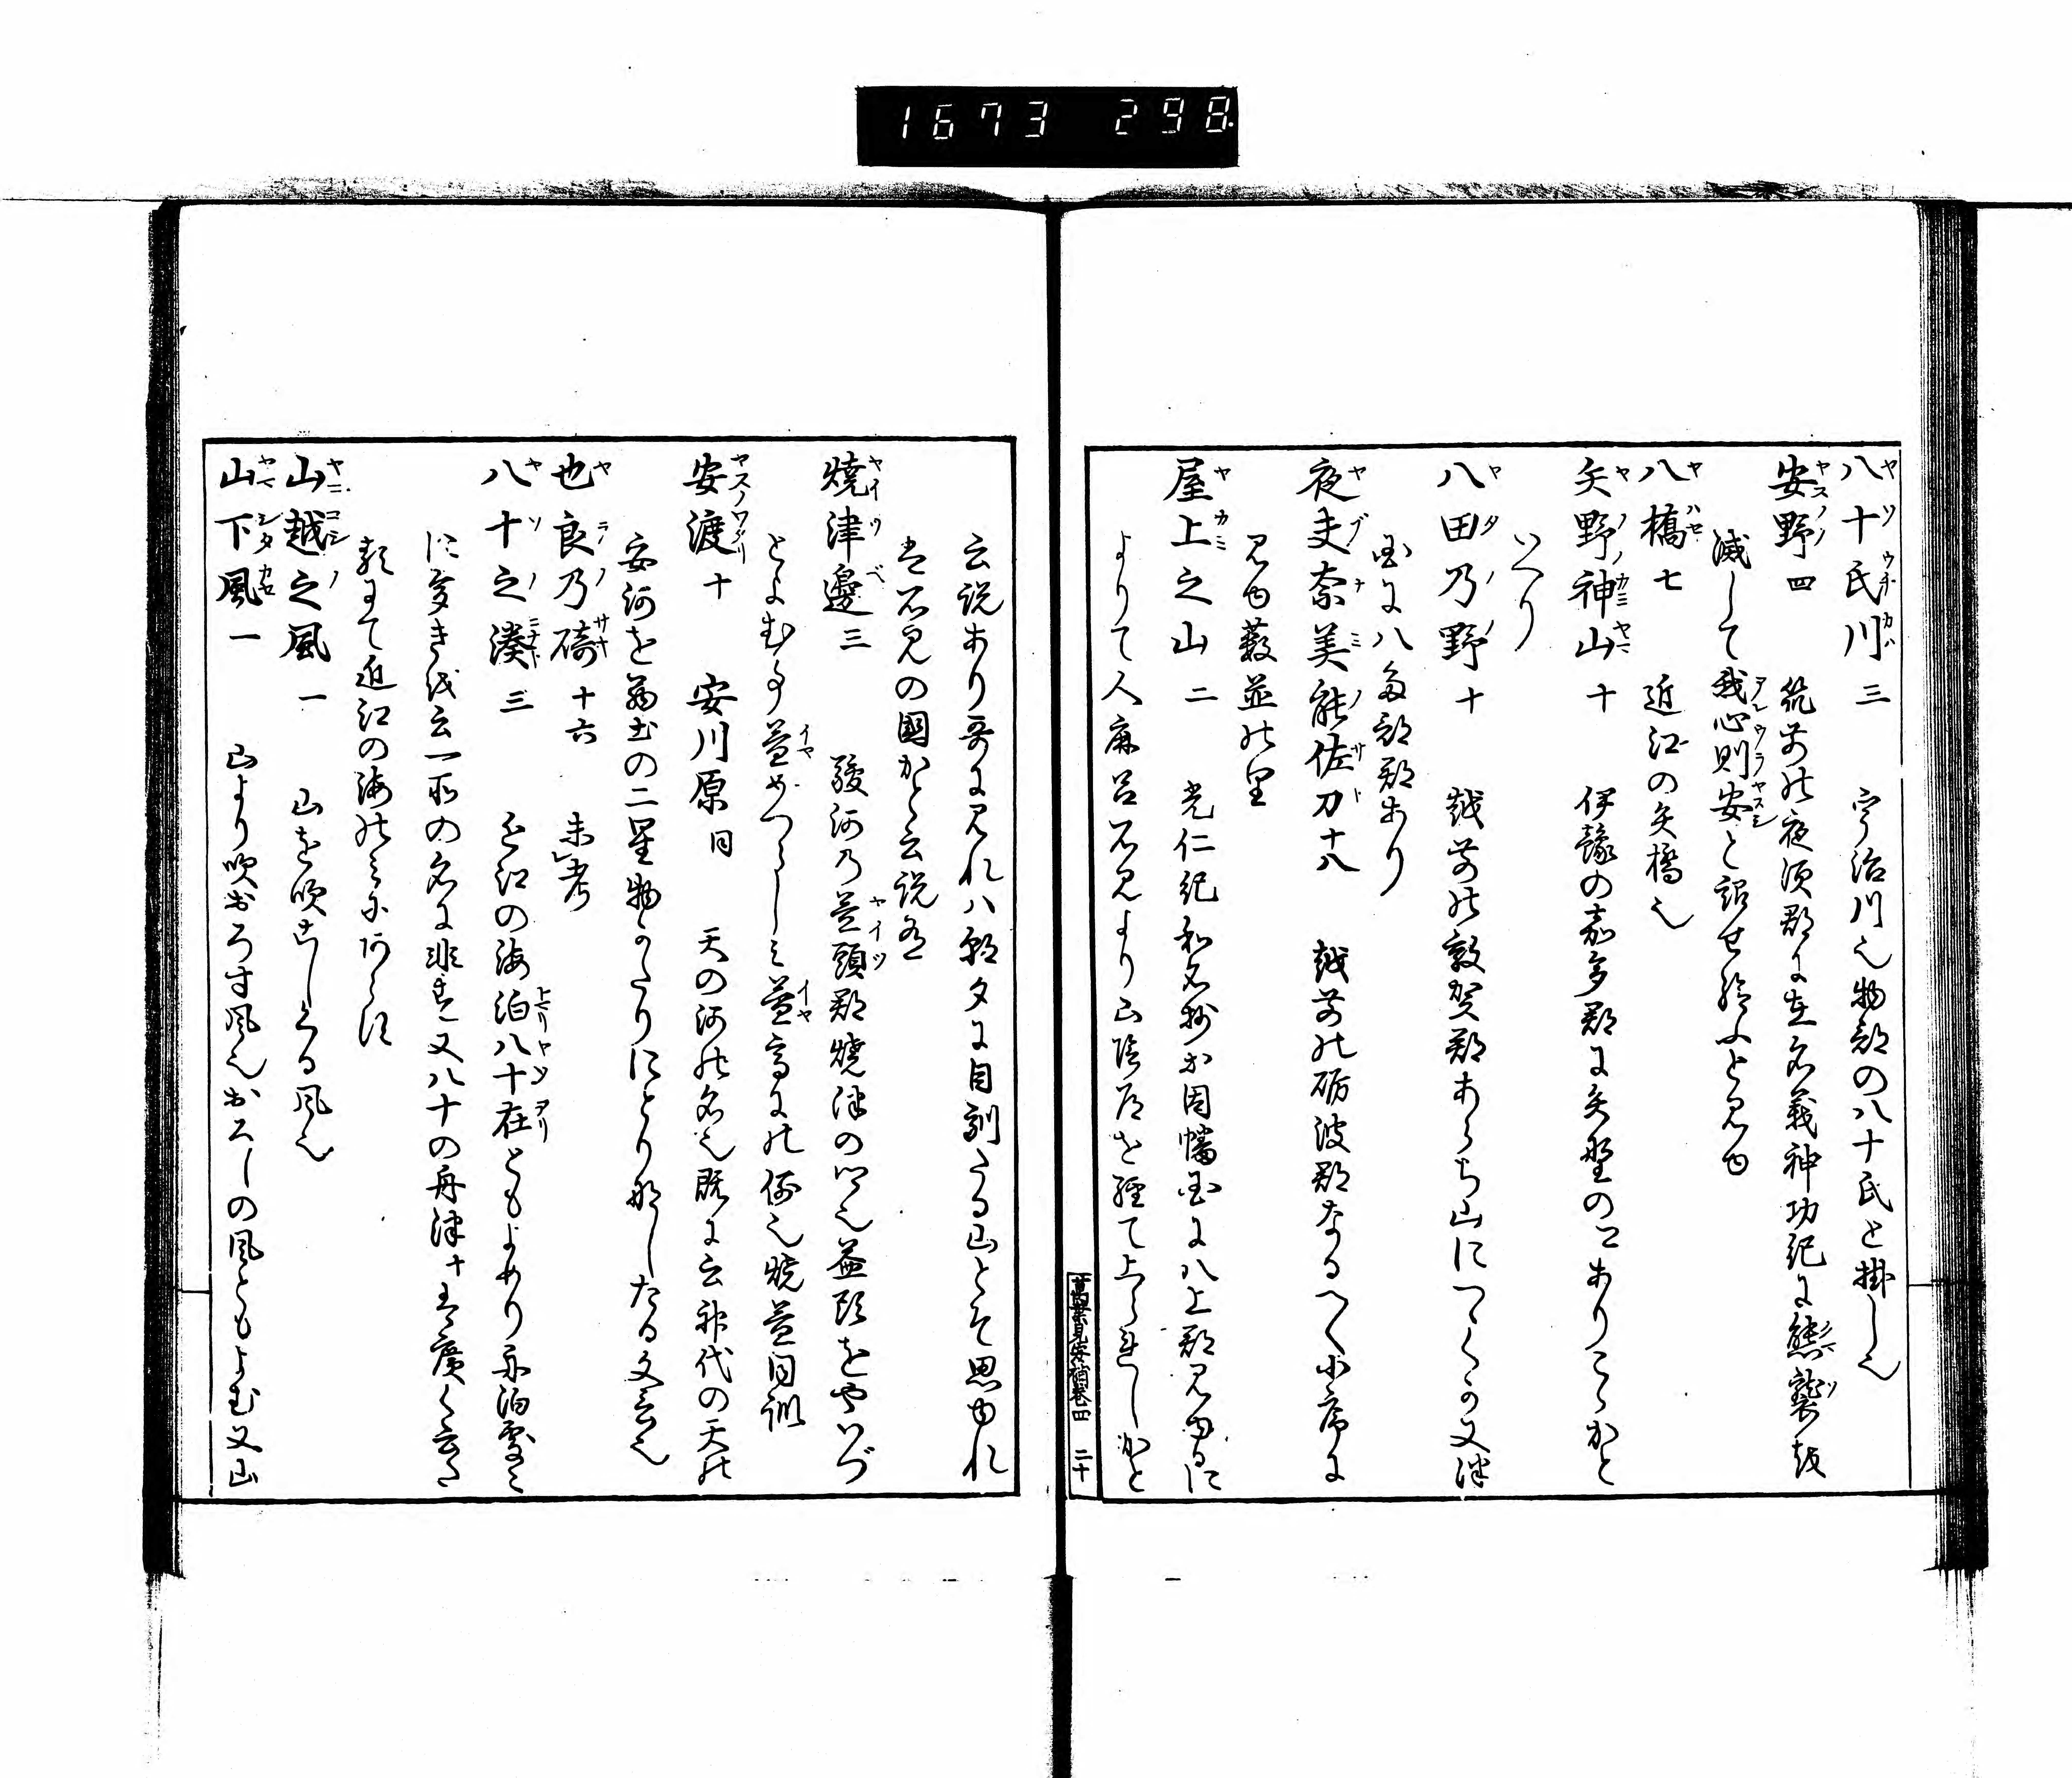 1673 298
八十氏川 三 宇治川也物部の八十氏と掛し也
安野 四 筑前の夜須郡に在名義神功紀に熊襲を
滅して我心則安と詔せ給ふと見ゆ
八橋 七 近江の矢橋也
矢野神山 十 伊豫の喜多郡に矢野のありこゝかと
いへり
八田乃野 十 越前の敦賀郡あらち山につゞくか又津
国に八多部郡あり
夜夫奈美能佐刀 十八 越前の砺波郡なるべく小序に
見ゆ薮並の里
屋上之山 二 光仁紀和名抄に因幡国に八上郡見ゆるに
よりて人麻呂石見より山陰道を経て上られしかと
萬葉見安補巻四 二十
云説あり哥に見れハ朝夕に目馴たる山とそ思ゆれ
は石見の国かと云説有
焼津邊 三 駿河乃益頭郡焼津の也益頭をやいづ
とよむ事益めつらしミ益高にの例也焼益同訓
安渡 十 安川原 同 天の河の名也既に云神代の天の
安河を
の二星物かたりにとり那したる文言也
也良乃碕 十六 未考
八十之湊 三 近江の海泊八十在ともよめり
に多き を云一所の名に非す又八十の舟津十 廣く云
近江の海の
山越之風 一 山を吹こしくる風也
山下風 一 山より吹おろす風也おろしの風ともよむ又山